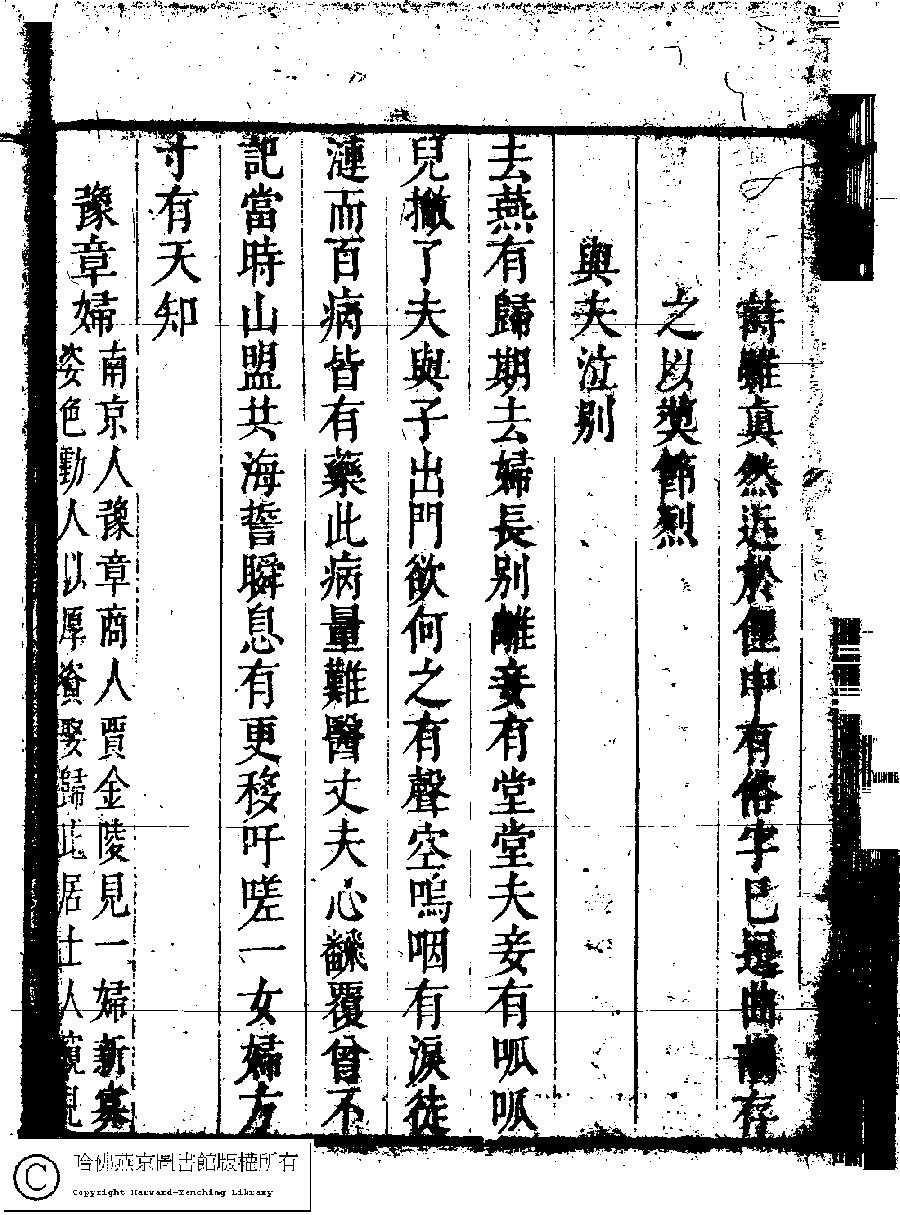 詩雖真然近於俚中有俗字已還曲調存
之以獎節烈
與夫泣别
去燕有歸期去婦長别離妾有堂堂夫妾有呱呱
兒撇了夫與子出門欲何之有聲空嗚咽有淚徒
漣而百病皆有藥此病量難醫丈夫心飜覆曾不
記當時山盟共海誓瞬息有更移吁嗟一女婦方
寸有天知
豫章婦
南京人豫章商人賈金陵見一婦新寡
姿色動人以厚資娶歸此居士人窺見
哈佛燕京圖書館版權所有
Copyright Harvard-Yenching Library